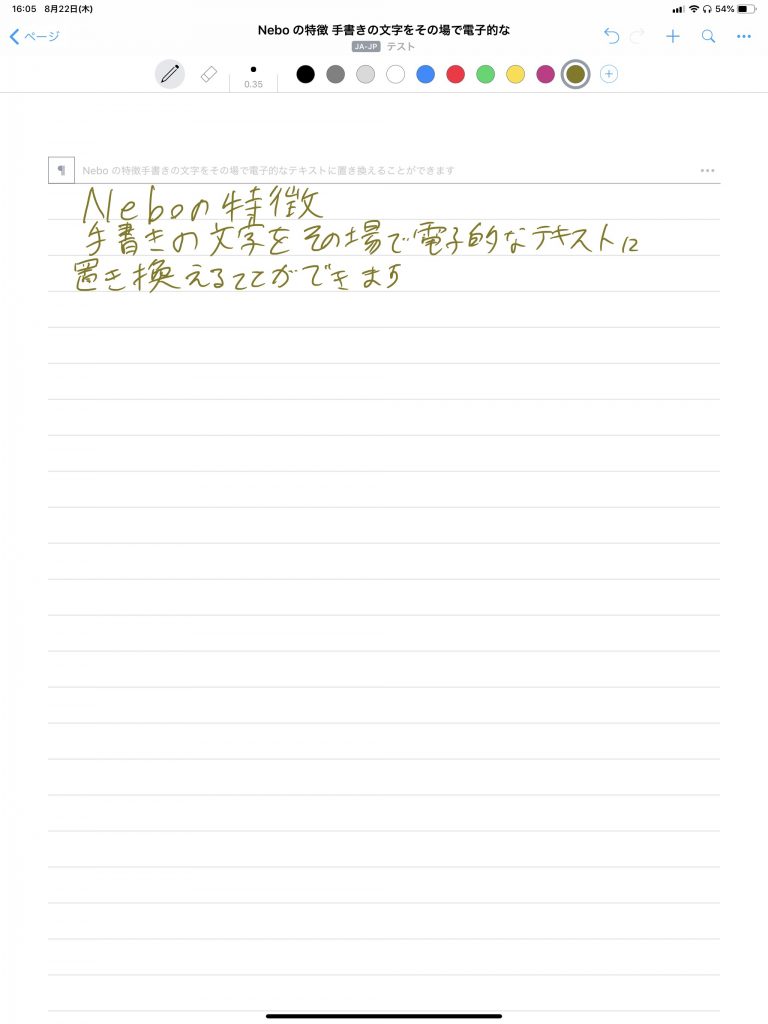 16:05 8月22日(木) 54%
ページ
Nebo の特徴 手書きの文字をその場で電子的な
JA-JP テスト
0.35
Nebo の特徴手書きの文字をその場で電子的なテキストに置き換えることができます
Neboの特徴
手書きの文字をその場で電子的なテキストに
置き換えることができます